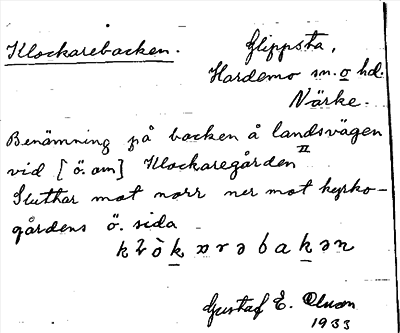 Klockarebacken.
Glippsta,
Hardemo sn. o hd.
Närke.
Benämning på backen å landsvägen
vid [ö. om] Klockaregården II
Sluttar mot norr ner mot kyrko-
gårdens ö. sida
Gustaf E. Olsson
1933